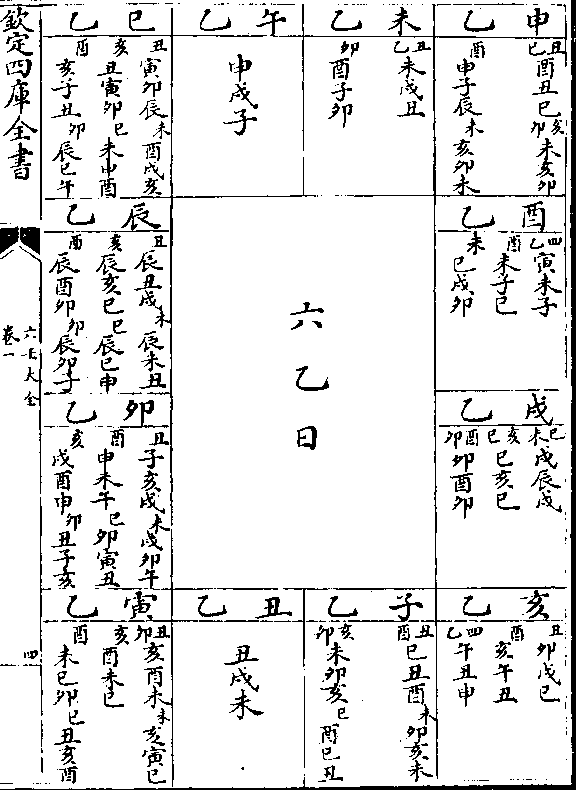 欽定四庫全書
六壬大全
卷一
四
申乙
丑巳酉丑巳亥卯未亥卯
酉申子辰未亥卯未
未乙
丑乙未戌丑
卯酉子卯
午乙
申戌子
巳乙
丑寅卯辰未酉戌亥
亥丑寅卯巳未申酉
酉亥子丑卯辰巳午
酉乙
四乙寅未子
酉未子巳
未巳戌卯
六乙日
辰乙
丑辰丑戌未辰未丑
亥辰亥巳巳辰巳申
酉辰酉卯卯辰卯子
戌乙
巳未戌辰戌
亥巳巳亥巳
酉卯卯酉卯
卯乙
丑子亥戌未戌卯午
酉申未午巳卯寅丑
亥戌酉申卯丑子亥
亥乙
丑卯戌巳
酉亥午丑
四乙午丑申
子乙
丑酉巳丑酉未卯亥未
亥卯未卯亥巳酉巳丑
丑乙
丑戌未
寅乙
丑卯亥酉未未亥寅巳
亥酉未巳
酉未巳卯巳丑亥酉